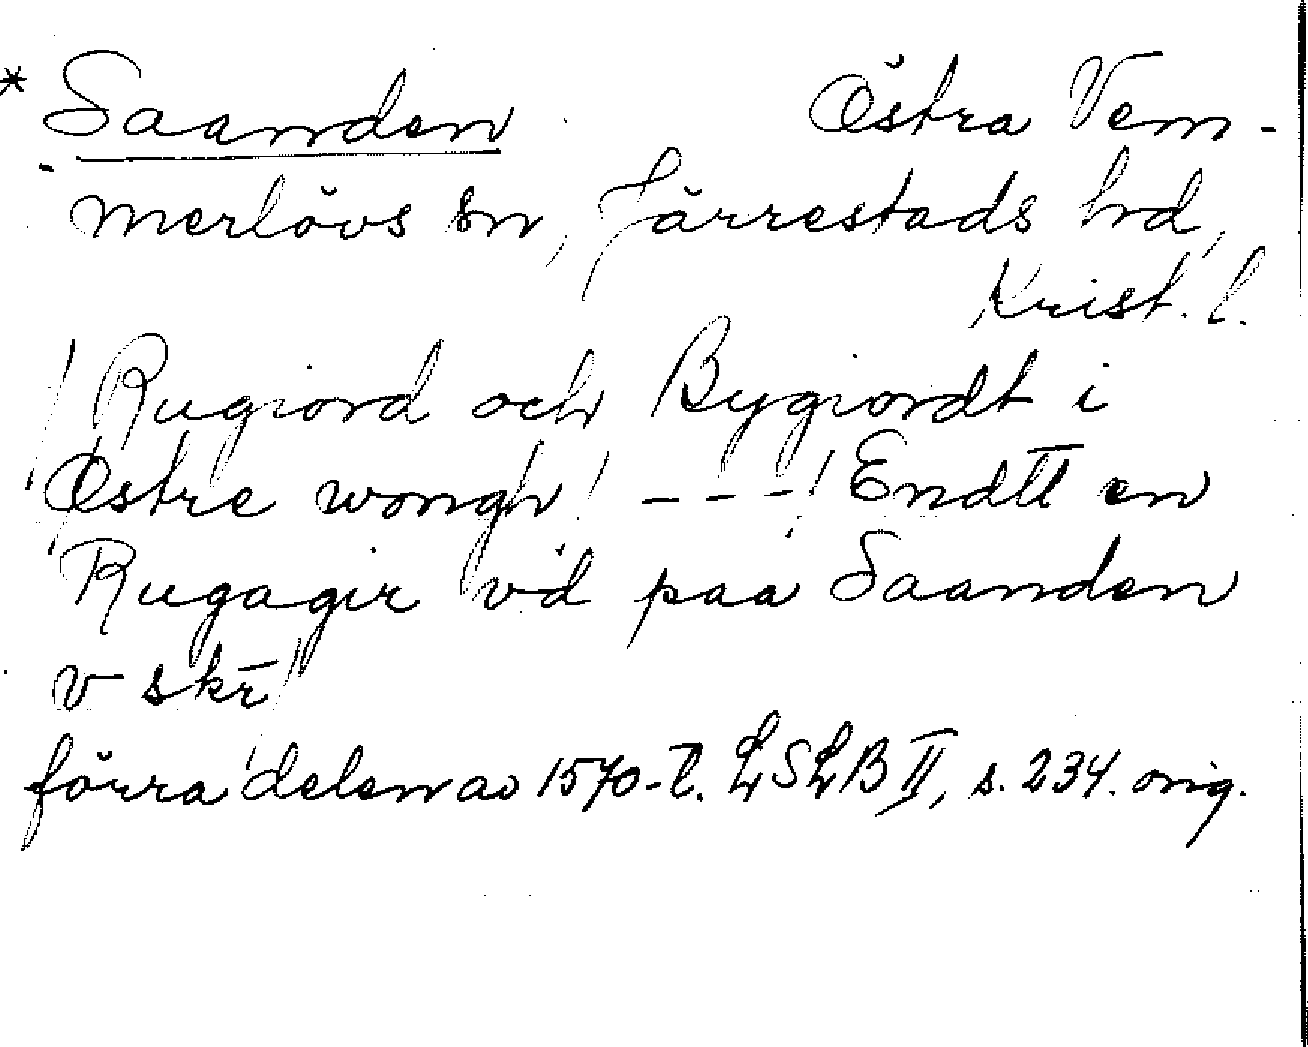 * Saanden Östra Vem-
merlövs sn, Järrestads hd,
Krist. l.
/Rugiord och Bygiordt i
Østre wongh/ - - - / Endtt en
Rugagir vd paa Saanden
v skr̄/
förra delen av 1570-t. LSLB II, s. 234. orig.